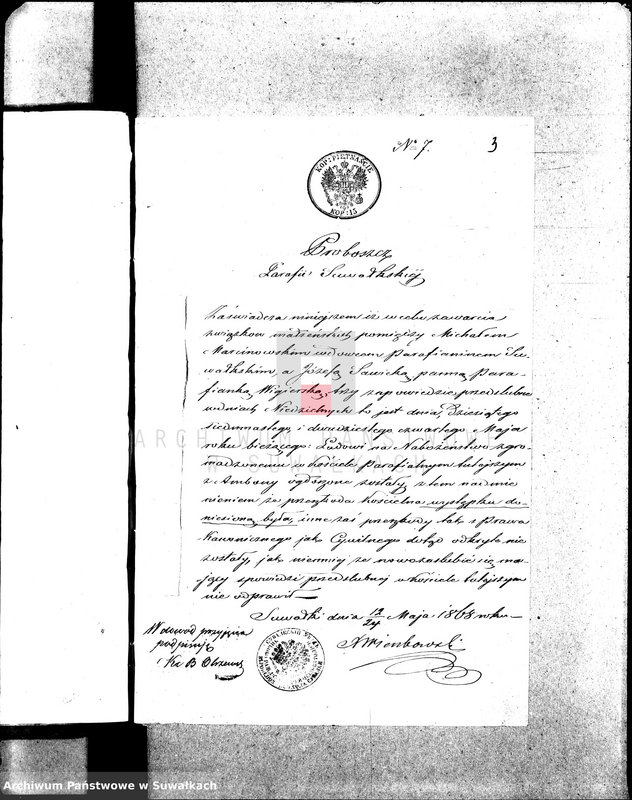 № 7.
3
KOP: PIĘTNAŚCIE
KOP: 15
Proboszcz
Parafii Suwałkskiéj
Zaświadcza niniejszem iż w celu zawarcia
związków małżeńskich pomiędzy Michałem
Marcinowskim wdowcem Parafianinem Su-
wałkskim, a Józefą Sawicką panną Para-
fianką Wigierską, trzy zapowiedzie przedślubne
w dniach Niedzielnych to jest dnia, Dziesiątego
siedmnastego, i dwudziestego czwartego Maja
roku bieżącego Ludowi na Nabożeństwo zgro-
madzonemu w kościele Parafialnym tutejszym
z Ambony ogłoszone zostały, z tem nadmie-
nieniem że przeszkoda kościelna występku do-
niesioną była, inne zaś przeszkody tak z Prawa
Kanonicznego jak Cywilnego dotąd odkryte nie
zostały, jak niemniej że nowozaślubić się ma-
jący spowiedzi przedślubnej w kościele tutejszym
nie odprawił
Suwałki dnia 12/24 Maja 1868 roku
W dowód przyjęcia
podpisuję
Kx B
ARCHIWUM PAŃSTWOWE
W SUWAŁKACH
Archiwum Państwowe w Suwałkach